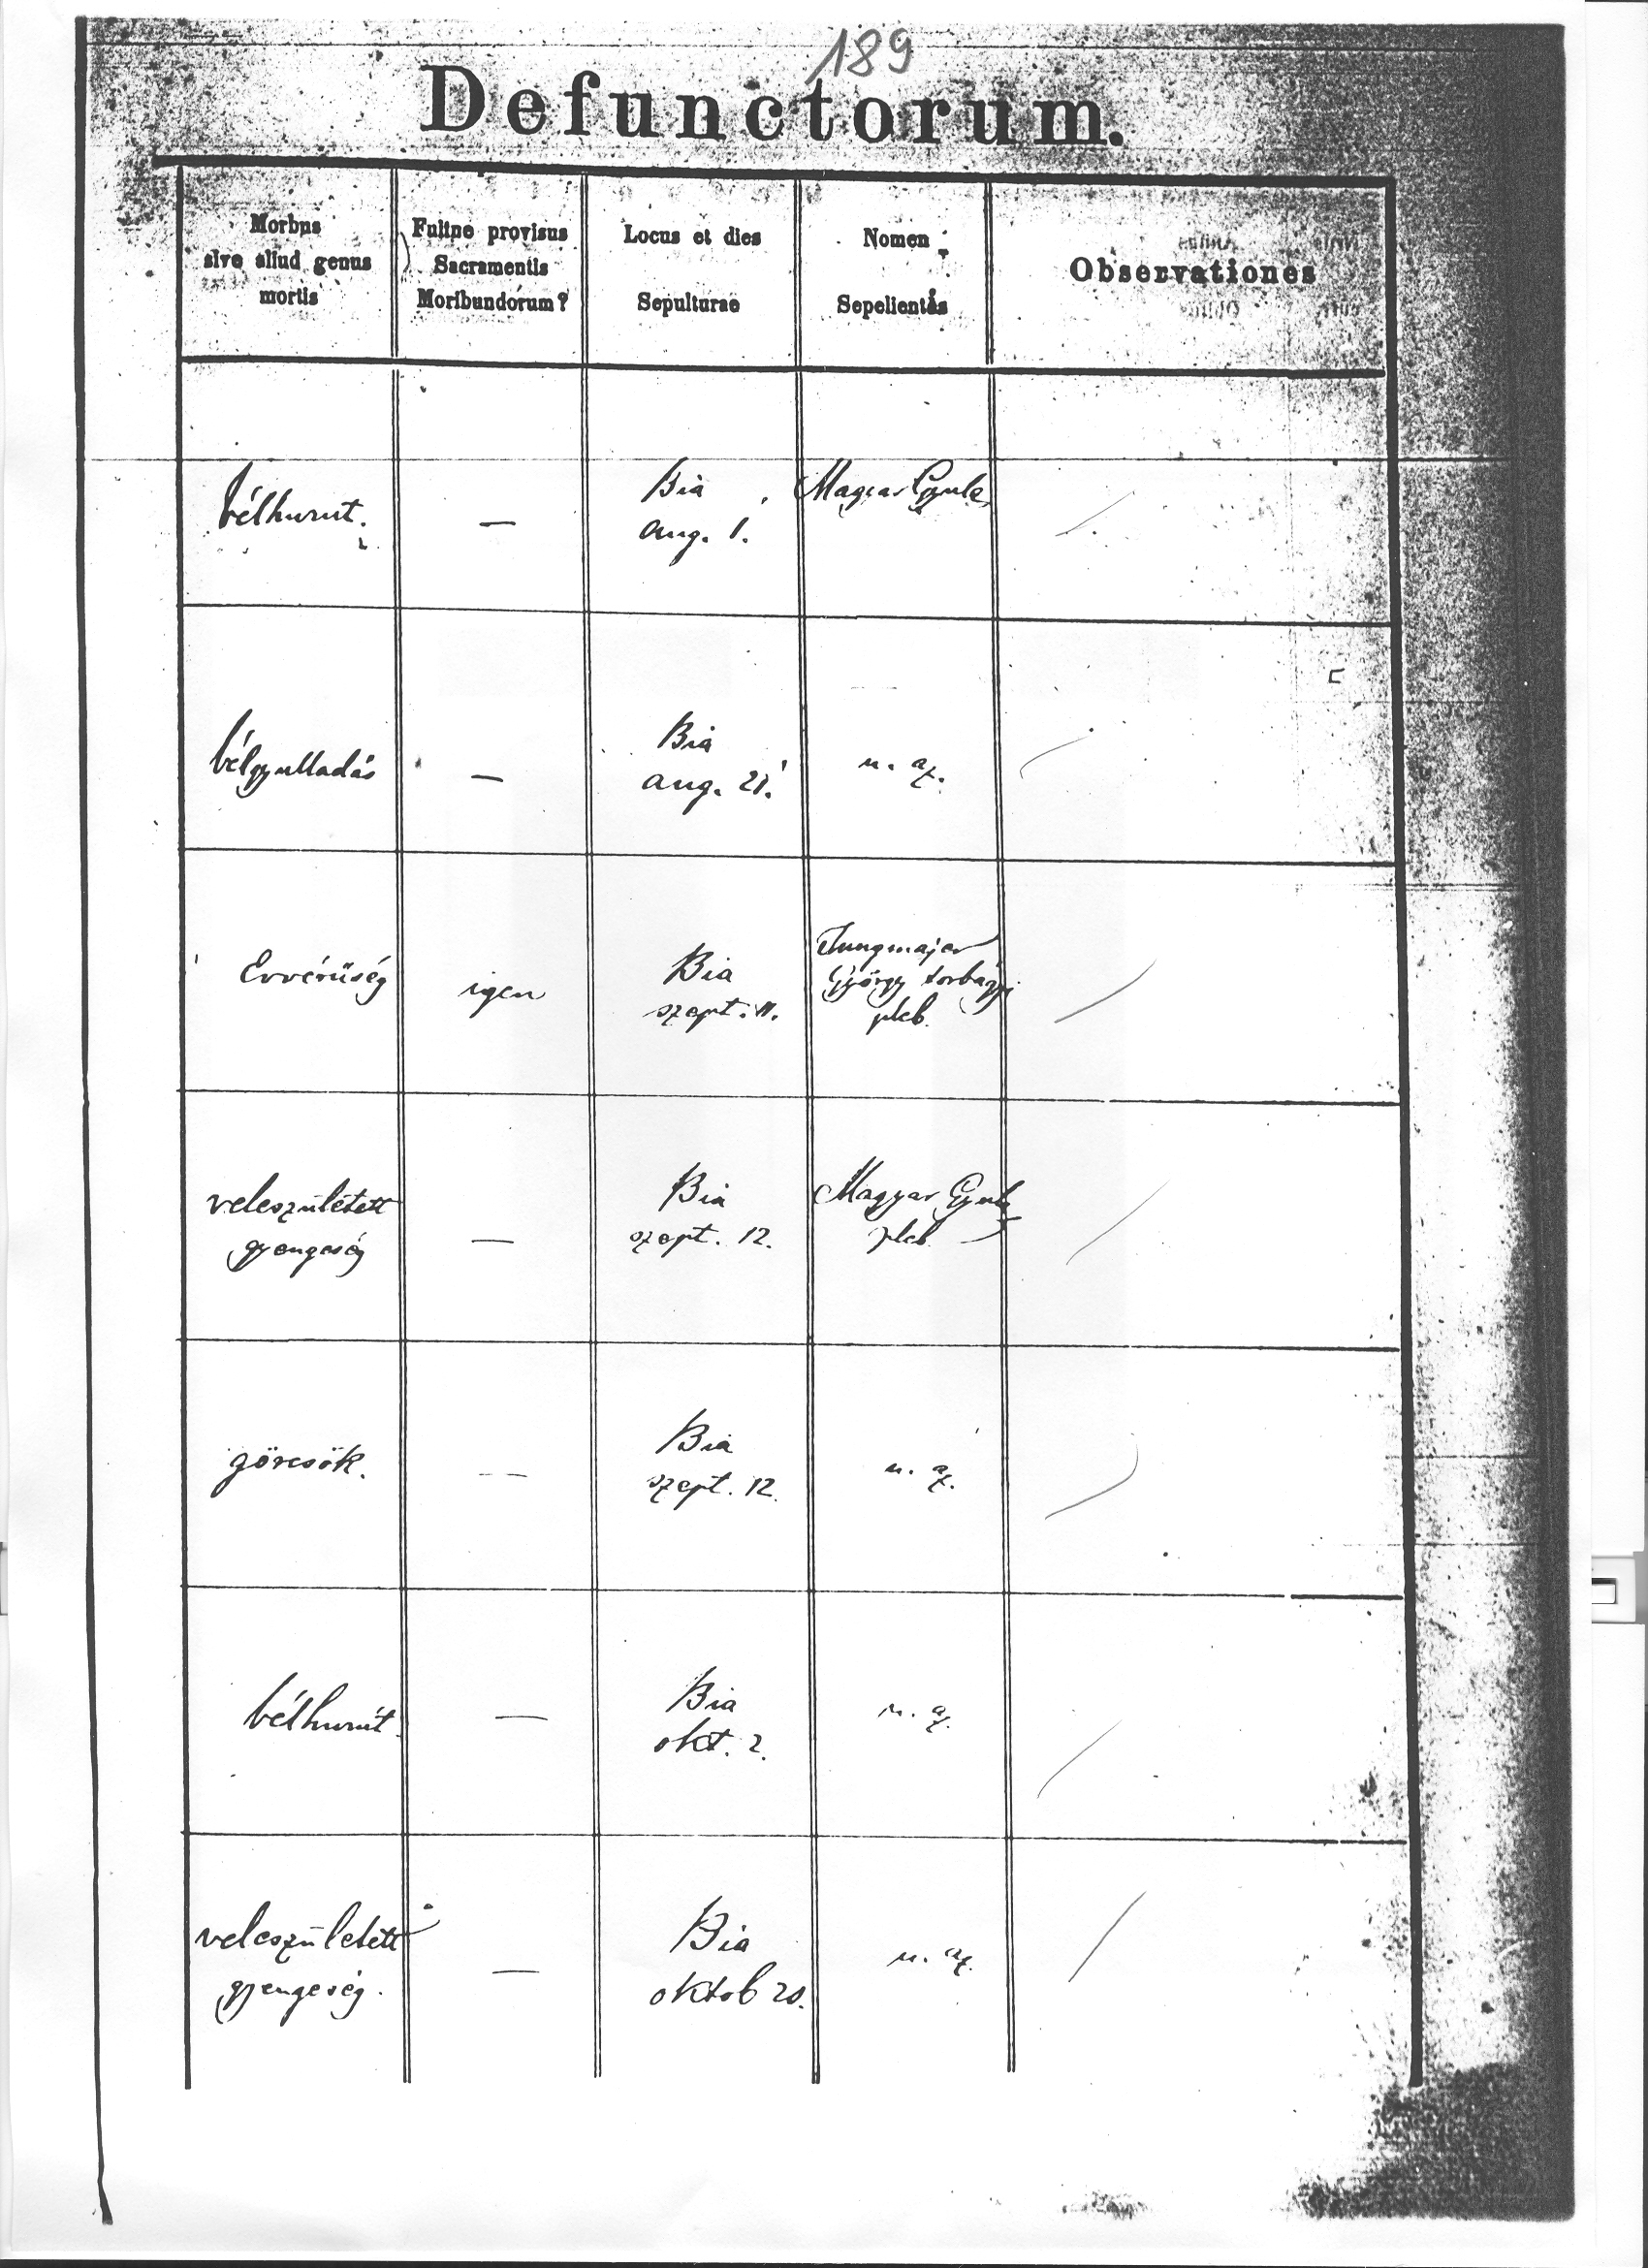 189
Defunctorum.
Morbus
sive aliud genus
mortis
Fuitne provisus
Sacramentis
Moribundorum?
Locus et dies
Sepulturae
Nomen
Sepelientis
Observationes
bélhurut.
—
Bia
aug. 1.
Magyar Gyula
bélgyulladás
—
Bia
aug. 21.
u. az.
igen
Bia
szept. 11.
Jungmajer
György torbágyi
pleb.
veleszületett
gyengeség
—
Bia
szept. 12.
Magyar Gyula
pleb.
görcsök.
—
Bia
szept. 12.
u. az.
bélhurút
—
Bia
okt. 2.
u. az.
veleszületett
gyengeség.
—
Bia
oktob 20.
u. az.